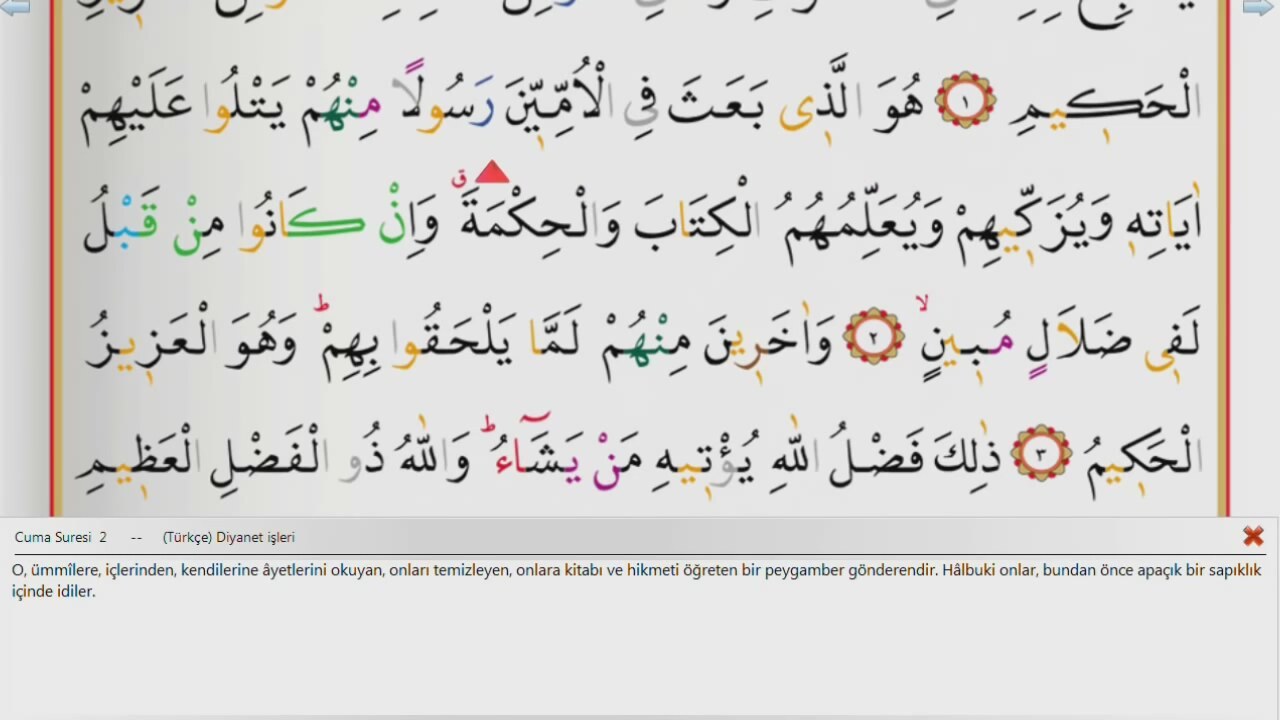 الْحَك۪يمِ ﴿١﴾ هُوَ الَّذ۪ى بَعَثَ فِى الْاُمِّيّ۪نَ رَسُولًا مِنْهُمْ يَتْلُوا عَلَيْهِمْ
اٰيَاتِه۪ وَيُزَكّ۪يهِمْ وَيُعَلِّمُهُمُ الْكِتَابَ وَالْحِكْمَةَ ق وَاِنْ كَانُوا مِنْ قَبْلُ
لَف۪ى ضَلَالٍ مُب۪ينٍ لا ﴿٢﴾ وَاٰخَر۪ينَ مِنْهُمْ لَمَّا يَلْحَقُوا بِهِمْ ط وَهُوَ الْعَز۪يزُ
الْحَك۪يمُ ﴿٣﴾ ذٰلِكَ فَضْلُ اللّٰهِ يُؤْت۪يهِ مَنْ يَشَٓاءُ ط وَاللّٰهُ ذُو الْفَضْلِ الْعَظ۪يمِ
Cuma Suresi 2 -- (Türkçe) Diyanet işleri
O, ümmîlere, içlerinden, kendilerine âyetlerini okuyan, onları temizleyen, onlara kitabı ve hikmeti öğreten bir peygamber gönderendir. Hâlbuki onlar, bundan önce apaçık bir sapıklık
içinde idiler.